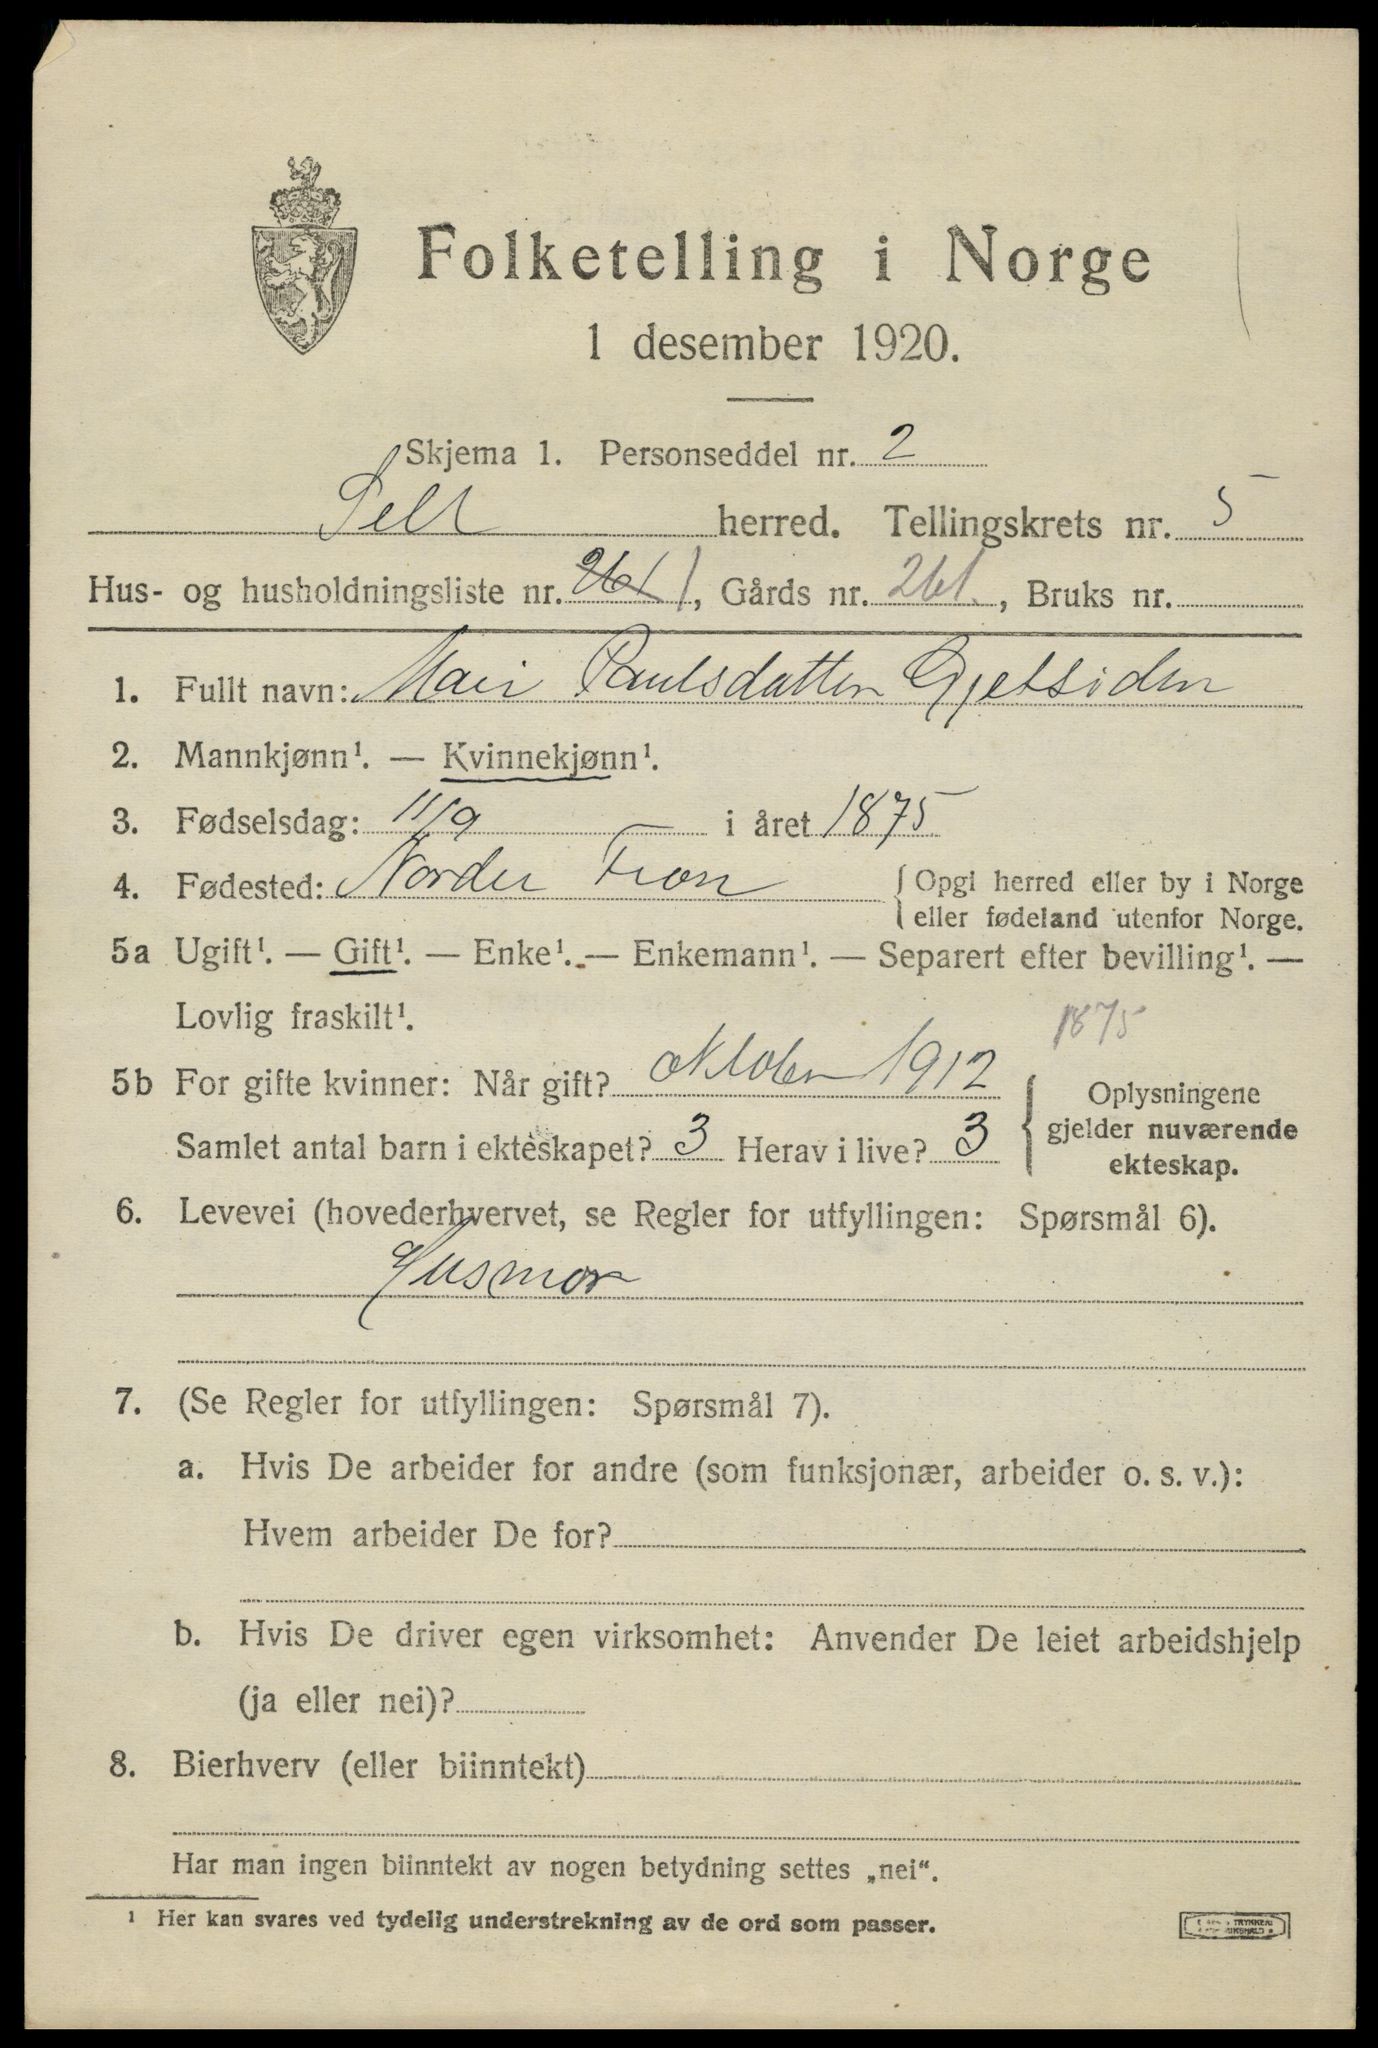 Folketelling i Norge
1 desember 1920.
Skjema 1. Personseddel nr. 2
Sell herred. Tellingskrets nr. 5
Hus- og husholdningsliste nr. 261 1, Gårds nr. 261., Bruks nr.
1. Fullt navn: Mari Paulsdatter Gjetsiden
2. Mannkjønn¹. — Kvinnekjønn¹.
3. Fødselsdag: 11/9 i året 1875
4. Fødested: Nordre Fron { Opgi herred eller by i Norge
eller fødeland utenfor Norge.
5a Ugift¹. — Gift¹. — Enke¹. — Enkemann¹. — Separert efter bevilling¹. —
Lovlig fraskilt¹.
1875
5b For gifte kvinner: Når gift? oktober 1912
Samlet antal barn i ekteskapet? 3 Herav i live? 3
{ Oplysningene
gjelder nuværende
ekteskap.
6. Levevei (hovederhvervet, se Regler for utfyllingen: Spørsmål 6).
Husmor
7. (Se Regler for utfyllingen: Spørsmål 7).
a. Hvis De arbeider for andre (som funksjonær, arbeider o. s. v.):
Hvem arbeider De for?
b. Hvis De driver egen virksomhet: Anvender De leiet arbeidshjelp
(ja eller nei)?
8. Bierhverv (eller biinntekt)
Har man ingen biinntekt av nogen betydning settes „nei“.
¹ Her kan svares ved tydelig understrekning av de ord som passer.